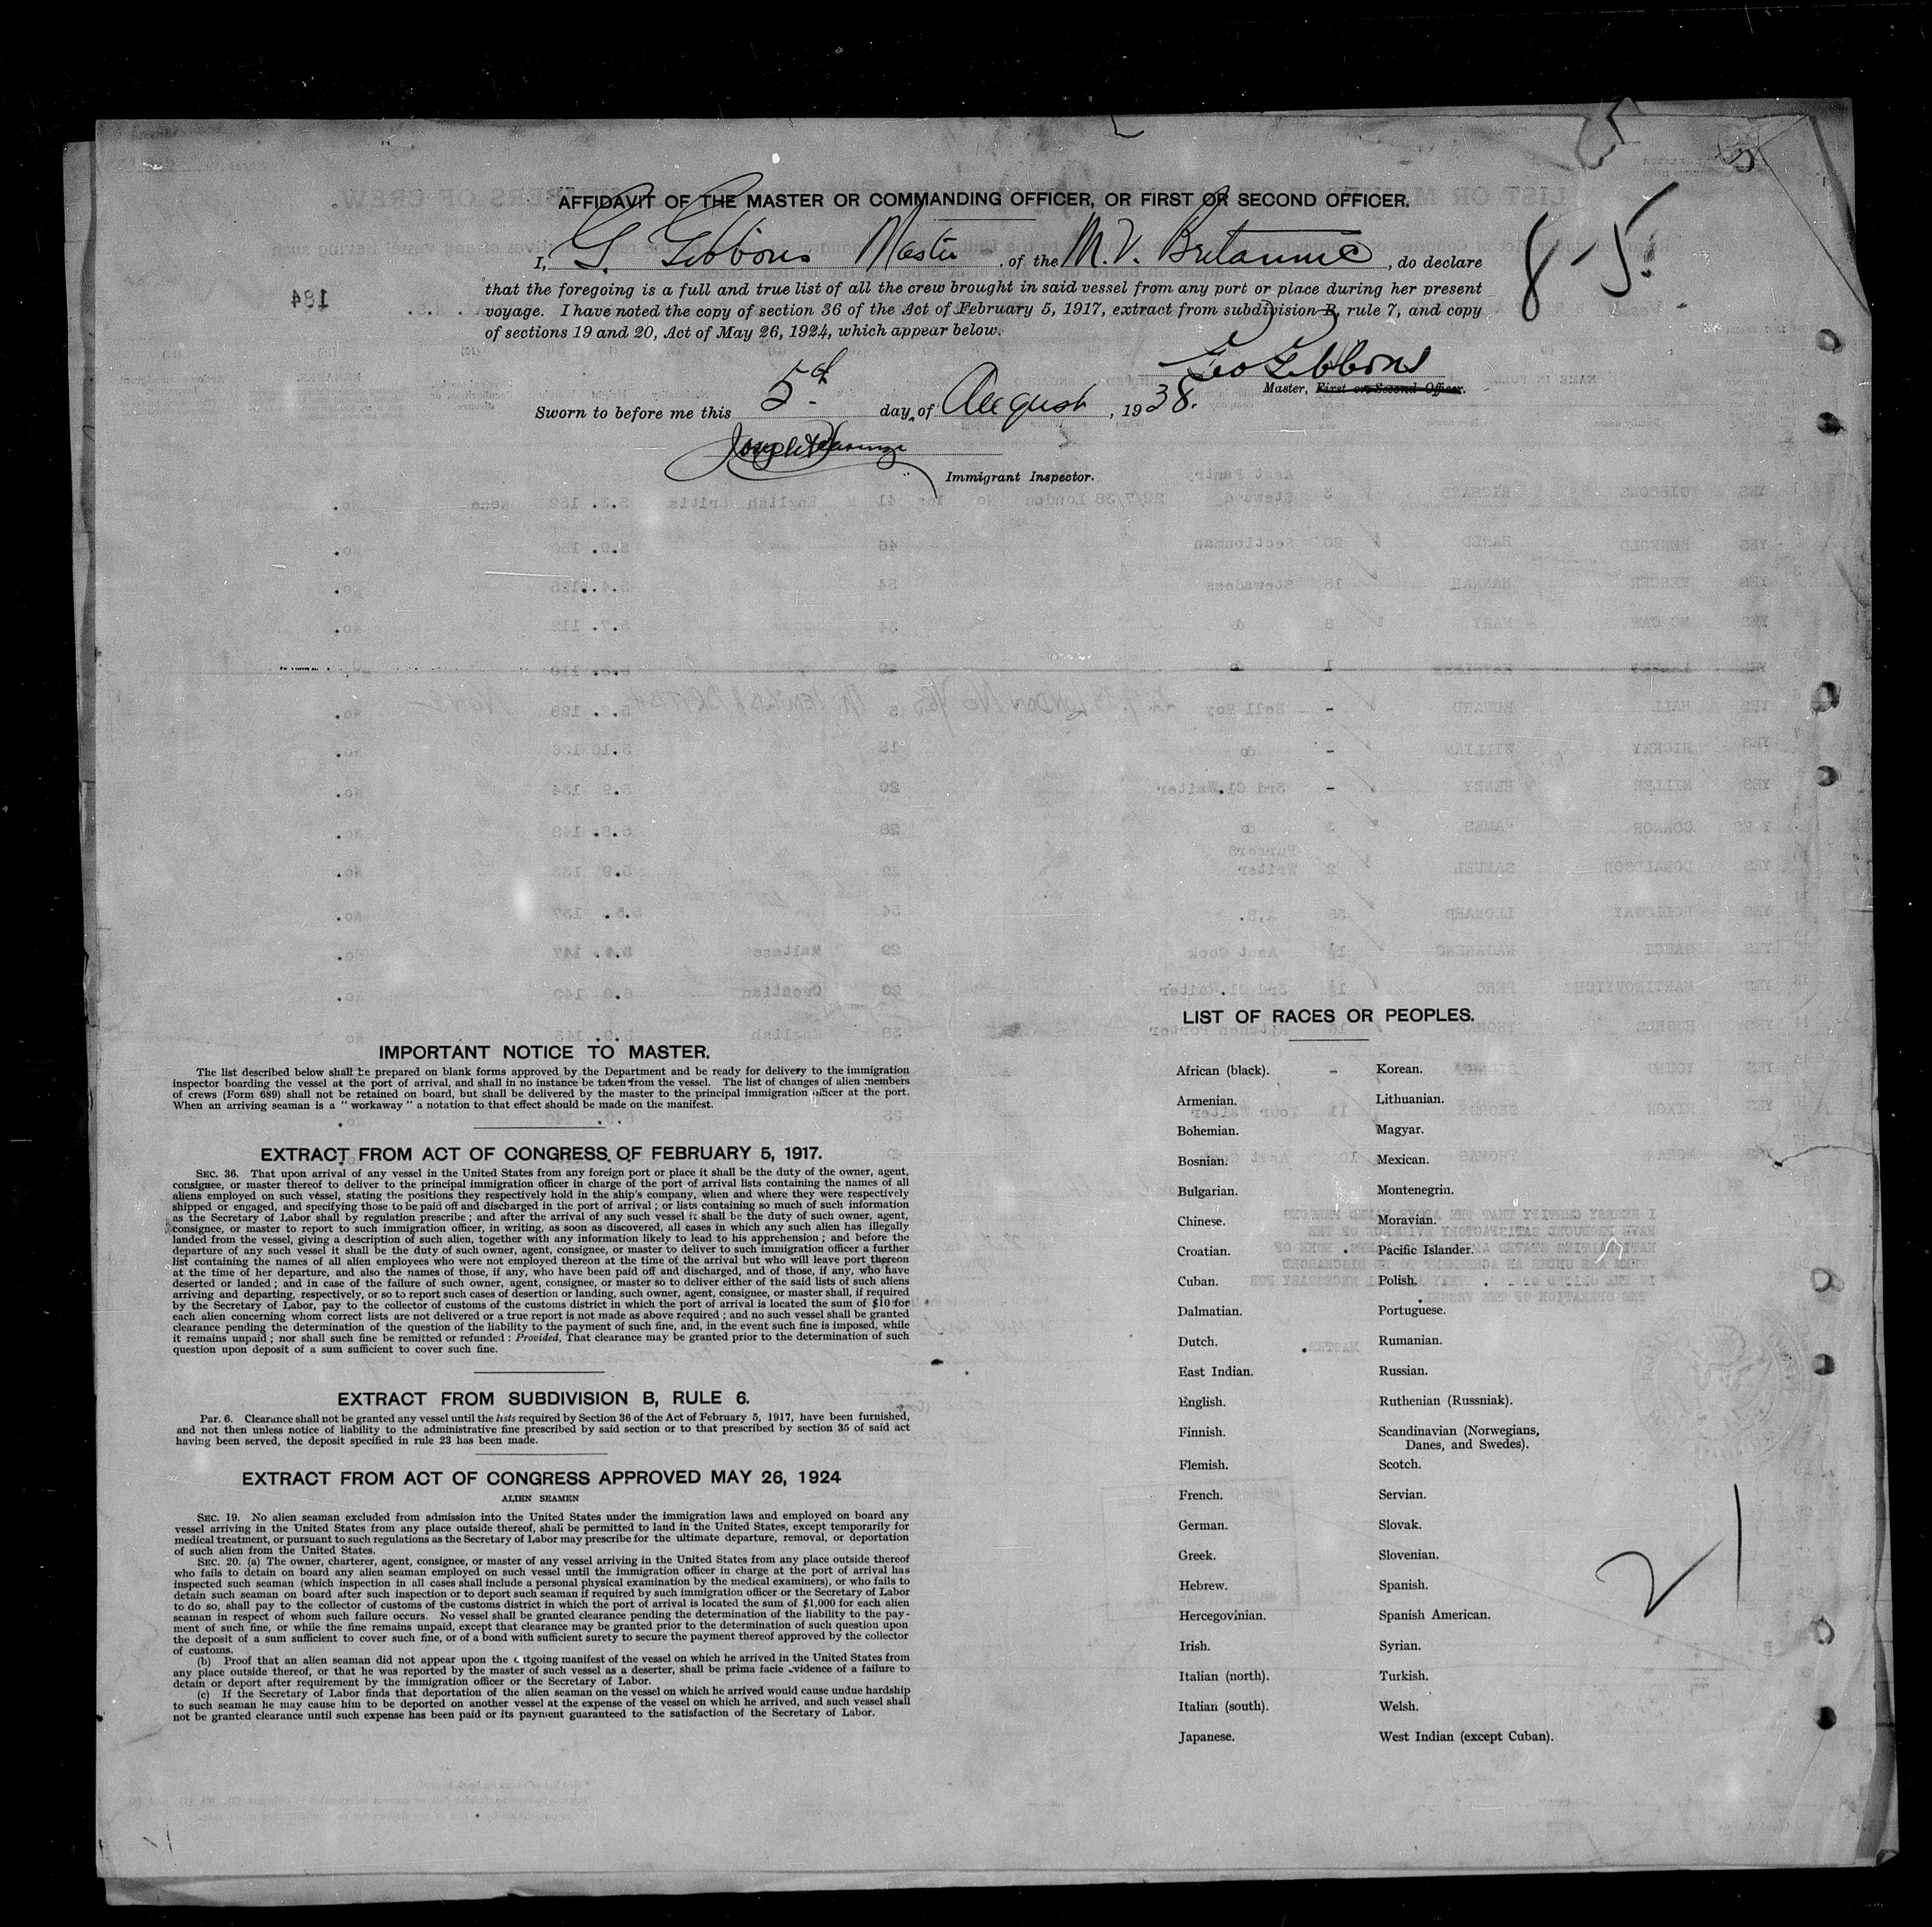 8-5
AFFIDAVIT OF THE MASTER OR COMMANDING OFFICER, OR FIRST OR SECOND OFFICER.
I, G. Gibbons Master, of the M.V. Britannic, do declare
that the foregoing is a full and true list of all the crew brought in said vessel from any port or place during her present
voyage. I have noted the copy of section 36 of the Act of February 5, 1917, extract from subdivision B, rule 7, and copy
of sections 19 and 20, Act of May 26, 1924, which appear below.
Geo Gibbons
Master, First or Second Officer.
Sworn to before me this 5th day of August, 1938.
Immigrant Inspector.
IMPORTANT NOTICE TO MASTER.
The list described below shall be prepared on blank forms approved by the Department and be ready for delivery to the immigration
inspector boarding the vessel at the port of arrival, and shall in no instance be taken from the vessel. The list of changes of alien members
of crews (Form 689) shall not be retained on board, but shall be delivered by the master to the principal immigration officer at the port.
When an arriving seaman is a " workaway " a notation to that effect should be made on the manifest.
EXTRACT FROM ACT OF CONGRESS OF FEBRUARY 5, 1917.
SEC. 36. That upon arrival of any vessel in the United States from any foreign port or place it shall be the duty of the owner, agent,
consignee, or master thereof to deliver to the principal immigration officer in charge of the port of arrival lists containing the names of all
aliens employed on such vessel, stating the positions they respectively hold in the ship's company, when and where they were respectively
shipped or engaged, and specifying those to be paid off and discharged in the port of arrival ; or lists containing so much of such information
as the Secretary of Labor shall by regulation prescribe ; and after the arrival of any such vessel it shall be the duty of such owner, agent,
consignee, or master to report to such immigration officer, in writing, as soon as discovered, all cases in which any such alien has illegally
landed from the vessel, giving a description of such alien, together with any information likely to lead to his apprehension ; and before the
departure of any such vessel it shall be the duty of such owner, agent, consignee, or master to deliver to such immigration officer a further
list containing the names of all alien employees who were not employed thereon at the time of the arrival but who will leave port thereon
at the time of her departure, and also the names of those, if any, who have been paid off and discharged, and of those, if any, who have
deserted or landed ; and in case of the failure of such owner, agent, consignee, or master so to deliver either of the said lists of such aliens
arriving and departing, respectively, or so to report such cases of desertion or landing, such owner, agent, consignee, or master shall, if required
by the Secretary of Labor, pay to the collector of customs of the customs district in which the port of arrival is located the sum of $10 for
each alien concerning whom correct lists are not delivered or a true report is not made as above required ; and no such vessel shall be granted
clearance pending the determination of the question of the liability to the payment of such fine, and, in the event such fine is imposed, while
it remains unpaid ; nor shall such fine be remitted or refunded : Provided, That clearance may be granted prior to the determination of such
question upon deposit of a sum sufficient to cover such fine.
EXTRACT FROM SUBDIVISION B, RULE 6.
Par. 6. Clearance shall not be granted any vessel until the lists required by Section 36 of the Act of February 5, 1917, have been furnished,
and not then unless notice of liability to the administrative fine prescribed by said section or to that prescribed by section 35 of said act
having been served, the deposit specified in rule 23 has been made.
EXTRACT FROM ACT OF CONGRESS APPROVED MAY 26, 1924
ALIEN SEAMEN
SEC. 19. No alien seaman excluded from admission into the United States under the immigration laws and employed on board any
vessel arriving in the United States from any place outside thereof, shall be permitted to land in the United States, except temporarily for
medical treatment, or pursuant to such regulations as the Secretary of Labor may prescribe for the ultimate departure, removal, or deportation
of such alien from the United States.
SEC. 20. (a) The owner, charterer, agent, consignee, or master of any vessel arriving in the United States from any place outside thereof
who fails to detain on board any alien seaman employed on such vessel until the immigration officer in charge at the port of arrival has
inspected such seaman (which inspection in all cases shall include a personal physical examination by the medical examiners), or who fails to
detain such seaman on board after such inspection or to deport such seaman if required by such immigration officer or the Secretary of Labor
to do so, shall pay to the collector of customs of the customs district in which the port of arrival is located the sum of $1,000 for each alien
seaman in respect of whom such failure occurs. No vessel shall be granted clearance pending the determination of the liability to the pay-
ment of such fine, or while the fine remains unpaid, except that clearance may be granted prior to the determination of such question upon
the deposit of a sum sufficient to cover such fine, or of a bond with sufficient surety to secure the payment thereof approved by the collector
of customs.
(b) Proof that an alien seaman did not appear upon the outgoing manifest of the vessel on which he arrived in the United States from
any place outside thereof, or that he was reported by the master of such vessel as a deserter, shall be prima facie evidence of a failure to
detain or deport after requirement by the immigration officer or the Secretary of Labor.
(c) If the Secretary of Labor finds that deportation of the alien seaman on the vessel on which he arrived would cause undue hardship
to such seaman he may cause him to be deported on another vessel at the expense of the vessel on which he arrived, and such vessel shall
not be granted clearance until such expense has been paid or its payment guaranteed to the satisfaction of the Secretary of Labor.
LIST OF RACES OR PEOPLES.
African (black).
Armenian.
Bohemian.
Bosnian.
Bulgarian.
Chinese.
Croatian.
Cuban.
Dalmatian.
Dutch.
East Indian.
English.
Finnish.
Flemish.
French.
German.
Greek.
Hebrew.
Hercegovinian.
Irish.
Italian (north).
Italian (south).
Japanese.
Korean.
Lithuanian.
Magyar.
Mexican.
Montenegrin.
Moravian.
Pacific Islander.
Polish.
Portuguese.
Rumanian.
Russian.
Ruthenian (Russniak).
Scandinavian (Norwegians,
Danes, and Swedes).
Scotch.
Servian.
Slovak.
Slovenian.
Spanish.
Spanish American.
Syrian.
Turkish.
Welsh.
West Indian (except Cuban).
21